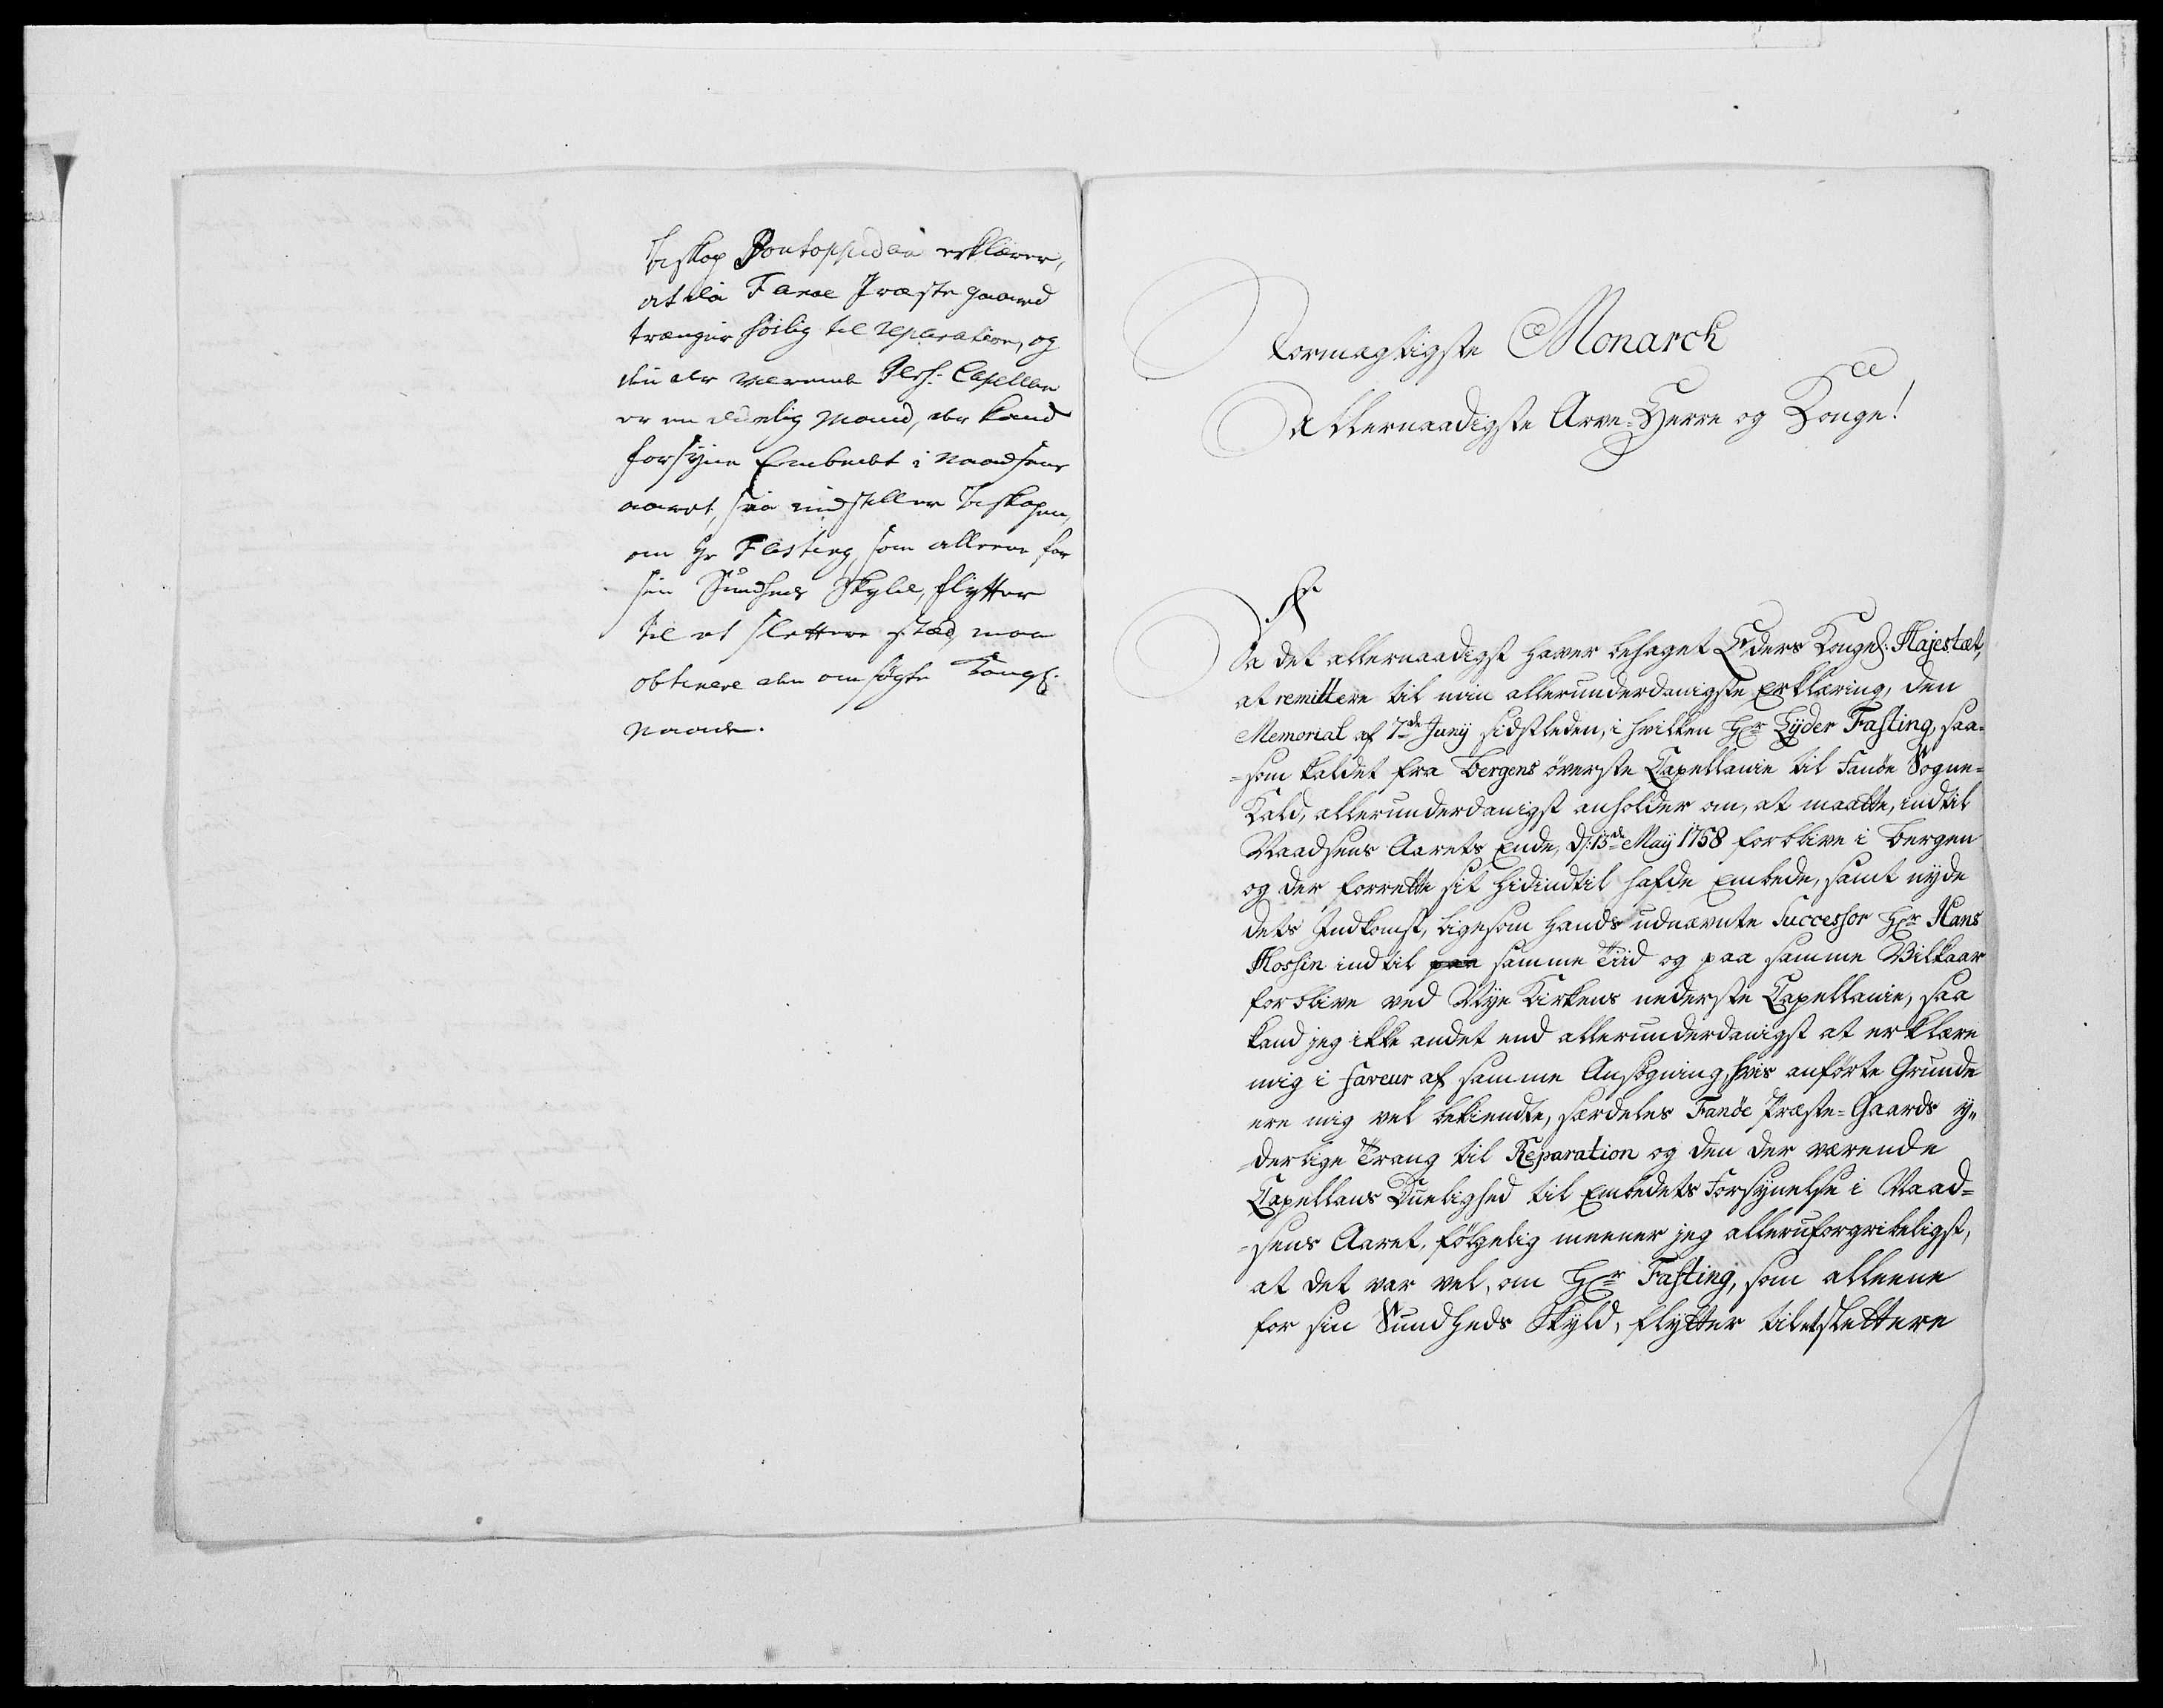 Biskop Pontoppidan erklærer,
at da Fanøe Præstegaard
trænger høilig til reparation, og
den der værende Pers: Capellan
er en duelig Mand, der kand
forsÿne Embedet i Naadsens
aaret, saa indstiller Biskopen,
om Hr Fasting, som alleene for
sin Sundheds Skyld, flytter
til et slettere stæd, maa
obtinere den omsøgte Kongl:
Naade.
Stormægtigste Monarch
Allernaadigste Arve-Herre og Konge!
Da det allernaadigst haver behaget Eders Kongel: Majestæt,
at remittere til min allerunderdanigste Erklæring, den
Memorial af 7de Junÿ sidstleden, i hvilken Hr Lÿder Fasting, saa-
-som kaldet fra Bergens øverste Capellanie til Fanöe Sogne-
Kald, allerunderdanigst anholder om, at maatte, indtil
Naadsens Aarets Ende, d: 13de Maÿ 1758 forblive i Bergen
og der forrette sit hidindtil hafde Embede, samt nÿde
dets Indkomst, ligesom hands udnævnte Successor Hr Hans
Mossin indtil paa samme Tiid og paa samme Vilkaar
forblive ved Nÿe Kirkens nederste Capellanie, saa
kand jeg ikke andet end allerunderdanigst at erklære
mig i faveur af samme Ansøgning, hvis anförte Grunde
ere mig vel bekiendte, særdeles Fanöe Præste-Gaards ÿ-
-derlige Trang til Reparation og den der værende
Capellans Duelighed til Embedets Forsÿnelse i Naad-
-sens Aaret. fölgelig meener jeg alleruforgribeligst,
at det var vel, om Hr Fasting, som alleene
for sin Sundheds Skÿld, flÿtter til et slettere